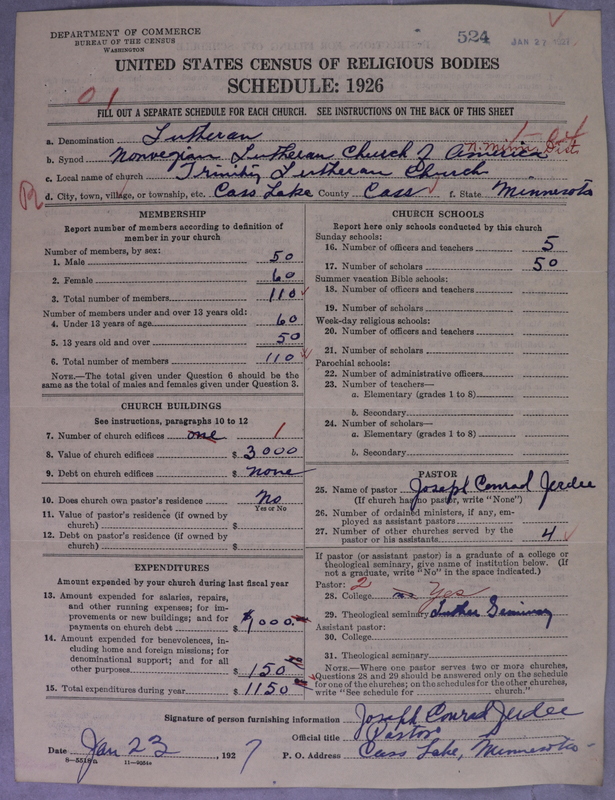 DEPARTMENT OF COMMERCE
BUREAU OF THE CENSUS
WASHINGTON
524 JAN 27 1927
UNITED STATES CENSUS OF RELIGIOUS BODIES
SCHEDULE: 1926
01
FILL OUT A SEPARATE SCHEDULE FOR EACH CHURCH. SEE INSTRUCTIONS ON THE BACK OF THIS SHEET
a. Denomination Lutheran
b. Synod Norwegian Lutheran Church of America N. Minn. Dist
c. Local name of church Trinity Lutheran Church
R d. City, town, village, or township, etc. Cass Lake County Cass f. State Minnesota
MEMBERSHIP
Report number of members according to definition of
member in your church
Number of members, by sex:
1. Male 50
2. Female 60
3. Total number of members 110
Number of members under and over 13 years old:
4. Under 13 years of age 60
5. 13 years old and over 50
6. Total number of members 110
NOTE.—The total given under Question 6 should be the
same as the total of males and females given under Question 3.
CHURCH BUILDINGS
See instructions, paragraphs 10 to 12
7. Number of church edifices one 1
8. Value of church edifices $ 3000
9. Debt on church edifices $ none
10. Does church own pastor's residence No
Yes or No
11. Value of pastor's residence (if owned by
church) $
12. Debt on pastor's residence (if owned by
church) $
EXPENDITURES
Amount expended by your church during last fiscal year
13. Amount expended for salaries, repairs,
and other running expenses; for im-
provements or new buildings; and for
payments on church debt $ 1000.00
14. Amount expended for benevolences, in-
cluding home and foreign missions; for
denominational support; and for all
other purposes $ 150 00
15. Total expenditures during year $ 1150 00
CHURCH SCHOOLS
Report here only schools conducted by this church
Sunday schools:
16. Number of officers and teachers 5
17. Number of scholars 50
Summer vacation Bible schools:
18. Number of officers and teachers
19. Number of scholars
Week-day religious schools:
20. Number of officers and teachers
21. Number of scholars
Parochial schools:
22. Number of administrative officers
23. Number of teachers—
a. Elementary (grades 1 to 8)
b. Secondary
24. Number of scholars—
a. Elementary (grades 1 to 8)
b. Secondary
PASTOR
25. Name of pastor Joseph Conrad Jerdee
(If church has no pastor, write "None")
26. Number of ordained ministers, if any, em-
ployed as assistant pastors
27. Number of other churches served by the
pastor or his assistants 4
If pastor (or assistant pastor) is a graduate of a college or
theological seminary, give name of institution below. (If
not a graduate, write "No" in the space indicated.)
Pastor: 2
28. College no Yes
29. Theological seminary Luther Seminary
Assistant pastor:
30. College
31. Theological seminary
NOTE.—Where one pastor serves two or more churches,
Questions 28 and 29 should be answered only on the schedule
for one of the churches; on the schedules for the other churches,
write "See schedule for church."
Signature of person furnishing information Joseph Conrad Jerdee
Official title Pastor
Date Jan 23, 1927 P. O. Address Cass Lake, Minnesota
8-5518a 11-9054a